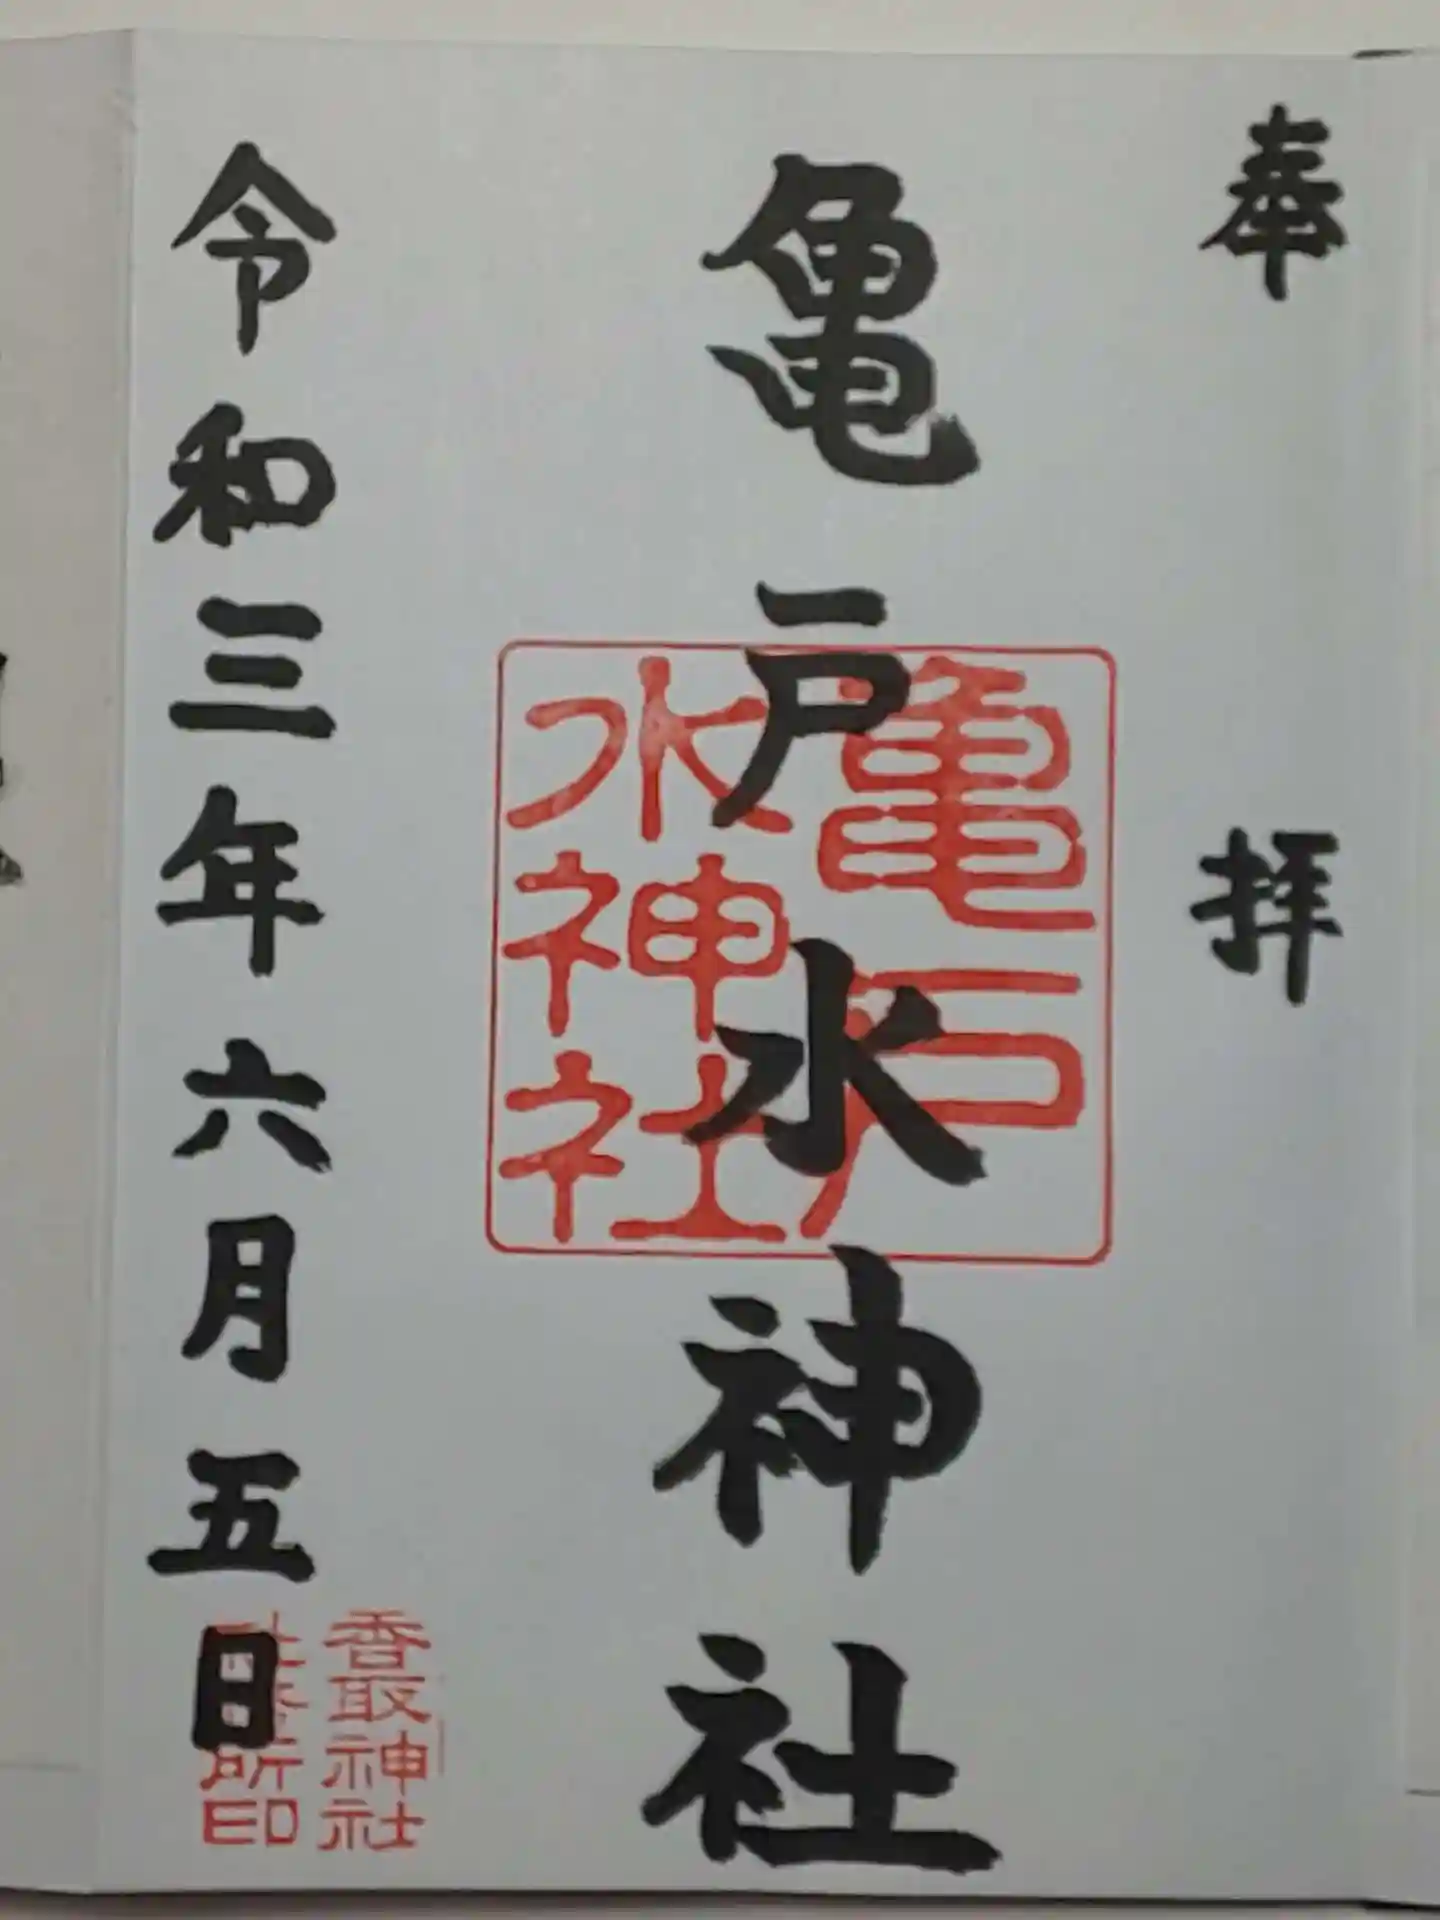 奉拝
亀戸水神社
亀戸
水神社
令和三年六月五日
香取神社
所印